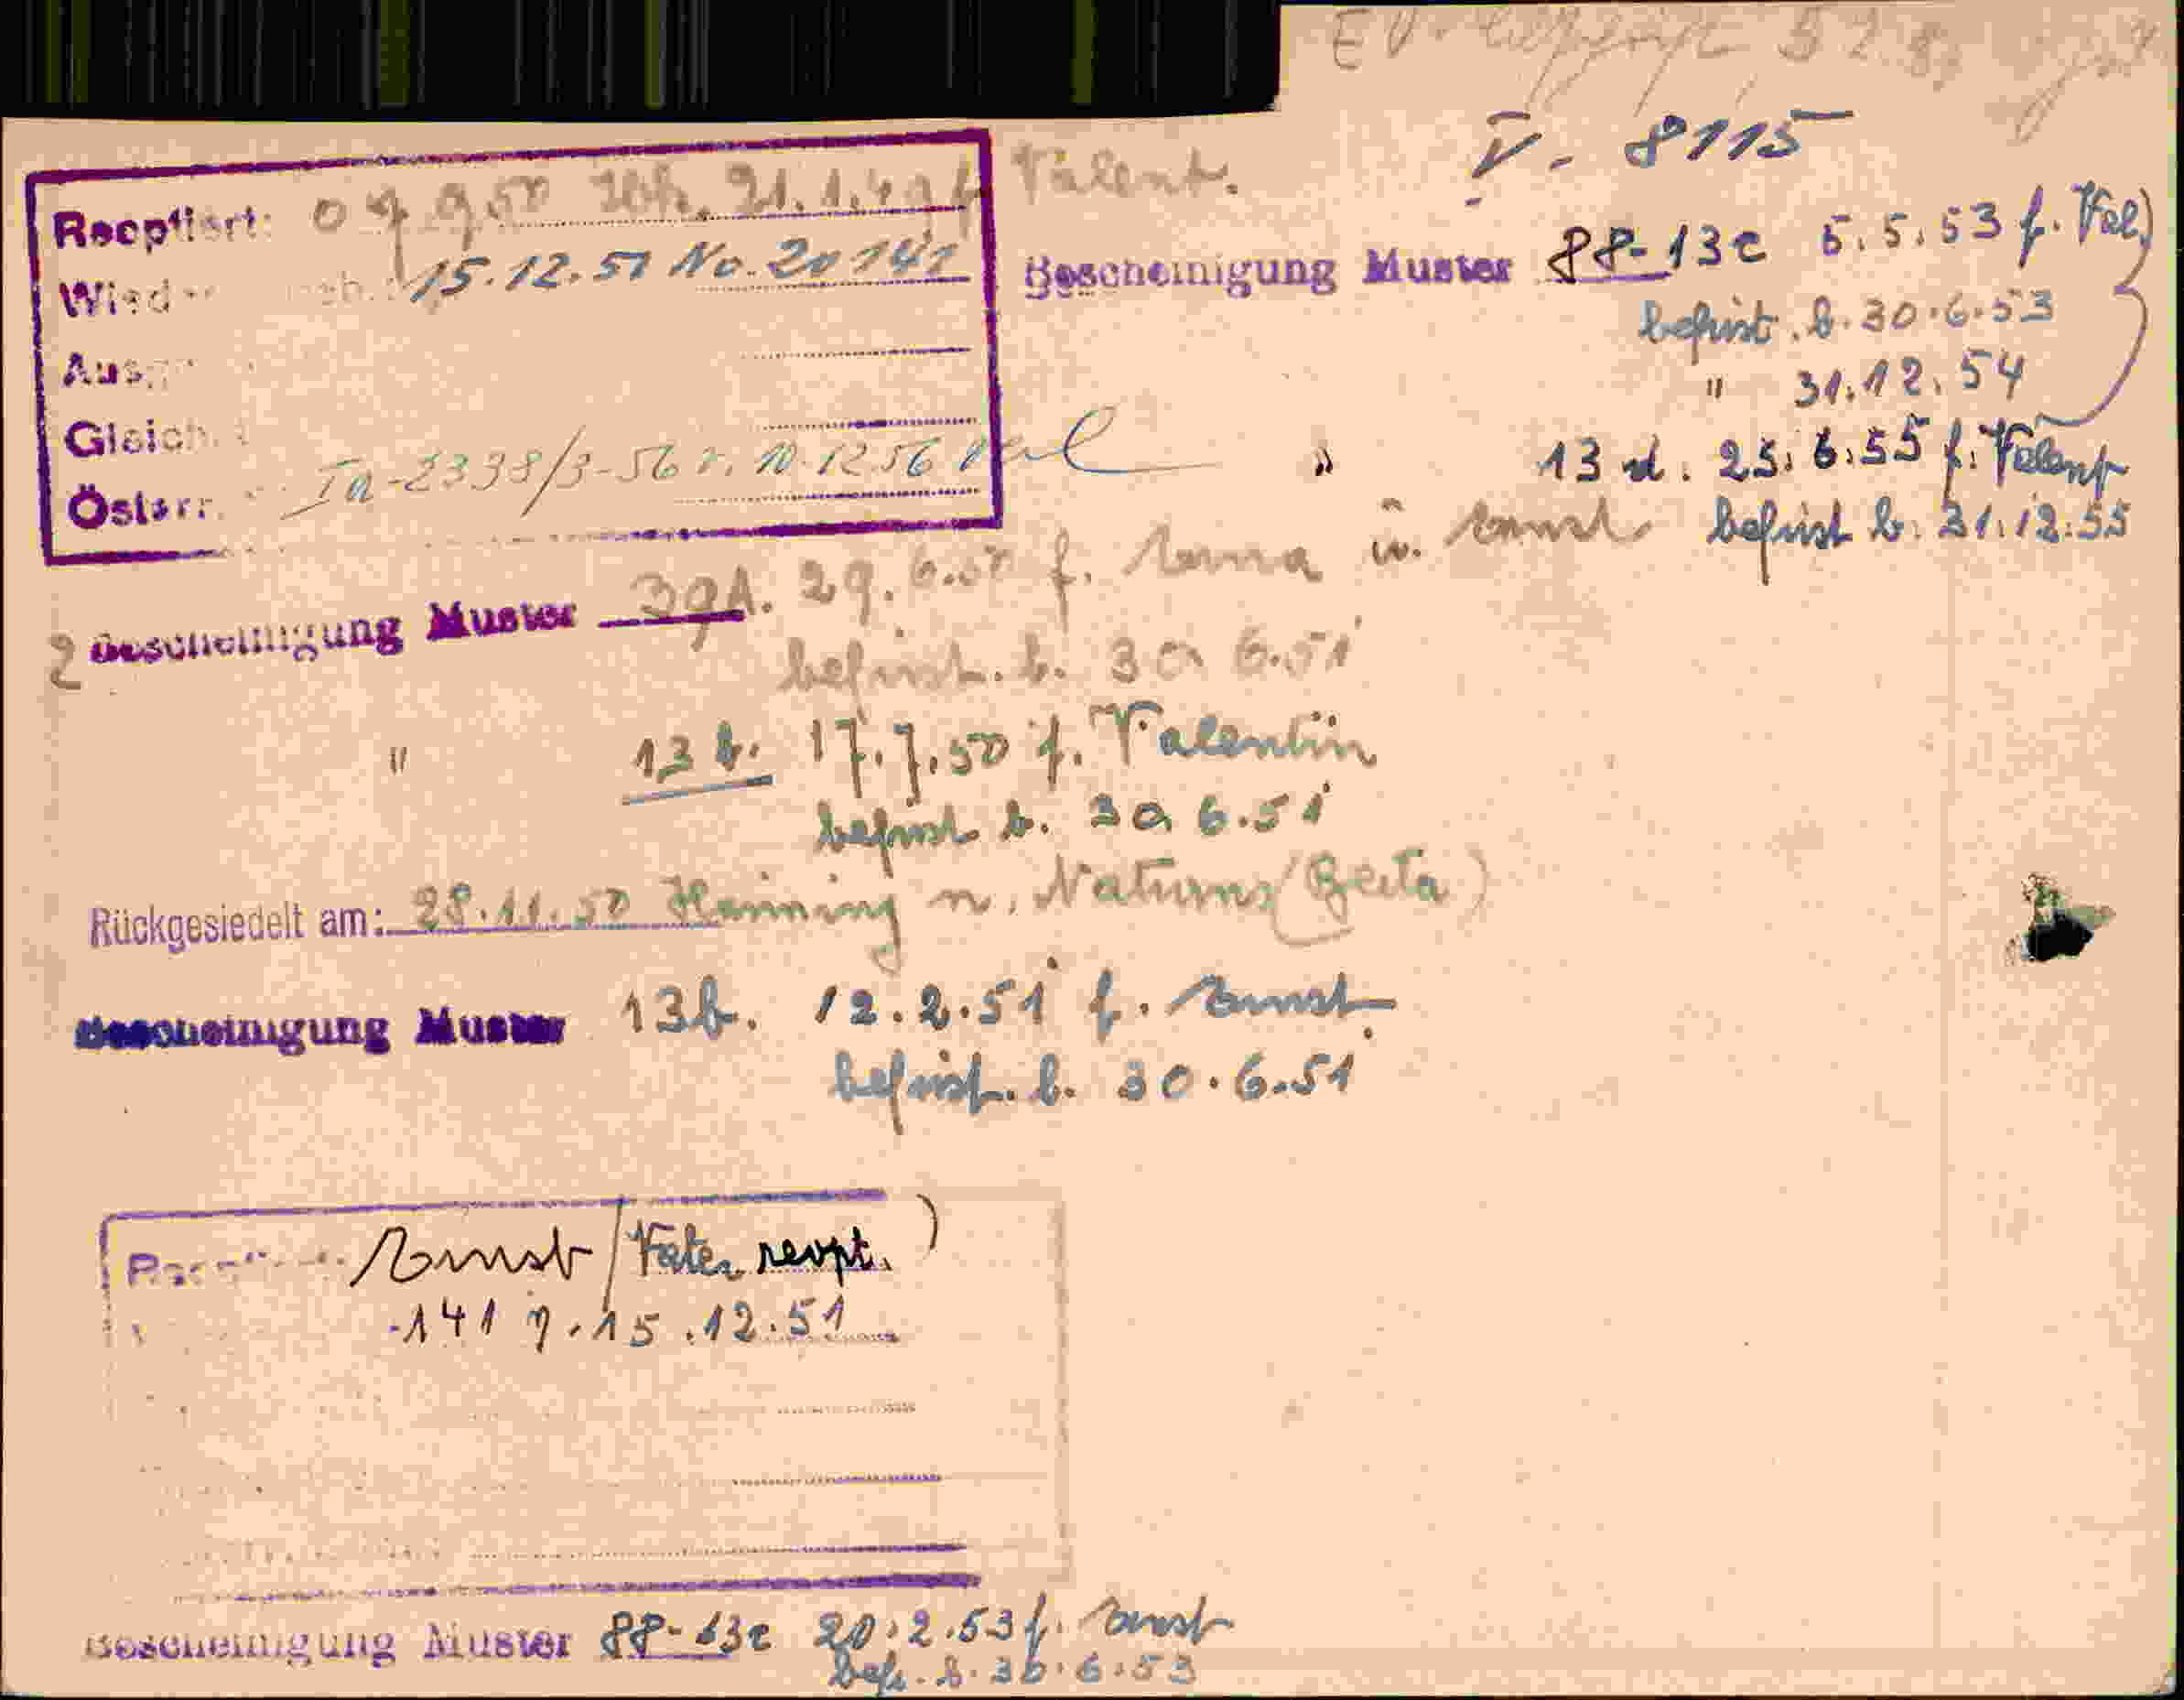 V. 8115
Reoptiert: Valent.
Wied 15.12.51 No. 20141
Ausg
Gleich
Österr. Ia-2338/3-56 v. 10.12.56
Bescheinigung Muster 88-13c 5.5.53 f. Val.
befrist. b. 30.6.53
" 31.12.54
" 13 d. 23.6.55 f. Valent
befrist b. 31.12.55
2 Bescheinigung Muster 39A. 29.6.50 f. Anna u. Ernst
befrist. b. 30 6.51
" 13 b. 17.7.50 f. Valentin
befrist b. 30 6.51
Rückgesiedelt am: 28.11.50 n. Naturns
Bescheinigung Muster 13b. 12.2.51 f. Ernst
befrist. b. 30.6.51
Ernst (Vater reopt.)
141 15.12.51
Bescheinigung Muster 88-13c 20.2.53 f. Ernst
bef. b. 30.6.53